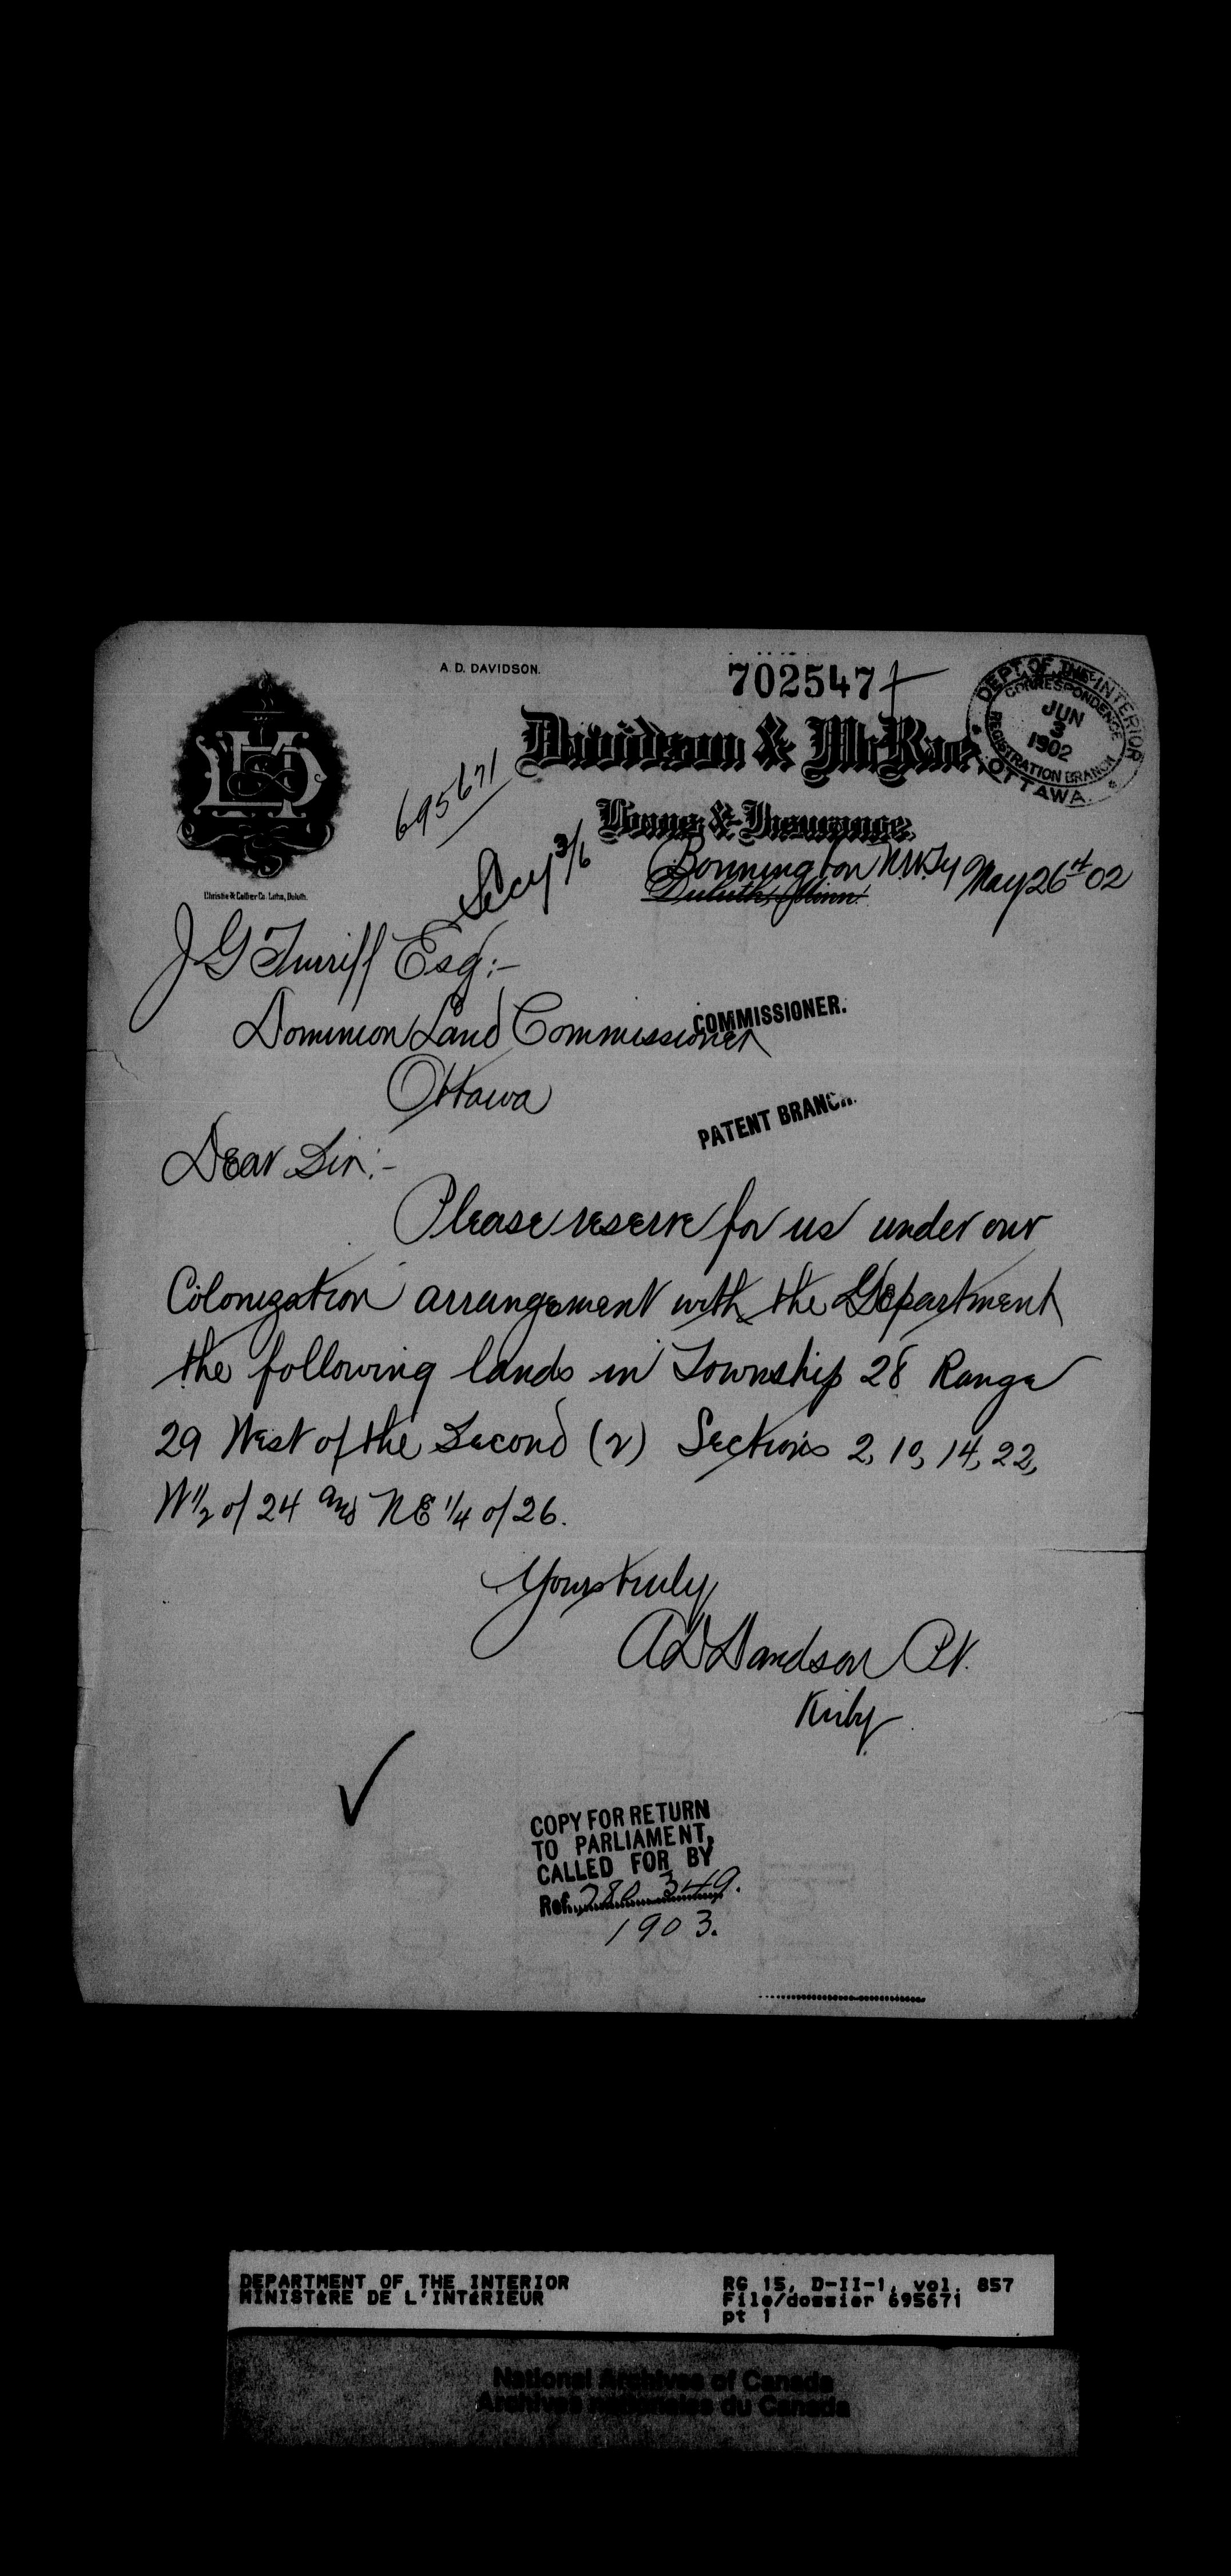 A. D. DAVIDSON.
702547
DEPT. OF THE INTERIOR
CORRESPONDENCE
JUN
3
1902
REGISTRATION BRANCH
OTTAWA.
Davidson & McRae,
695671
Loans & Insurance.
Secy 3/6
Bonnington N.W.Ty May 26th 02
Duluth, Minn.
Christie & Collier Co. Litho, Duluth.
J G Turriff Esq:-
Dominion Land Commissioner
COMMISSIONER.
Ottawa
PATENT BRANCH.
Dear Sir:-
Please reserve for us under our
Colonization arrangement with the Department
the following lands in Township 28 Range
29 West of the Second (2) Sections 2, 10, 14, 22,
W 1/2 of 24 and NE 1/4 of 26.
Yours truly
A D Davidson Pr.
Kirby
COPY FOR RETURN
TO PARLIAMENT,
CALLED FOR BY
Ref. 349.
1903.
DEPARTMENT OF THE INTERIOR
MINISTÈRE DE L'INTÉRIEUR
RG 15, D-II-1, vol. 857
File/dossier 695671
pt 1
National Archives of Canada
Archives nationales du Canada